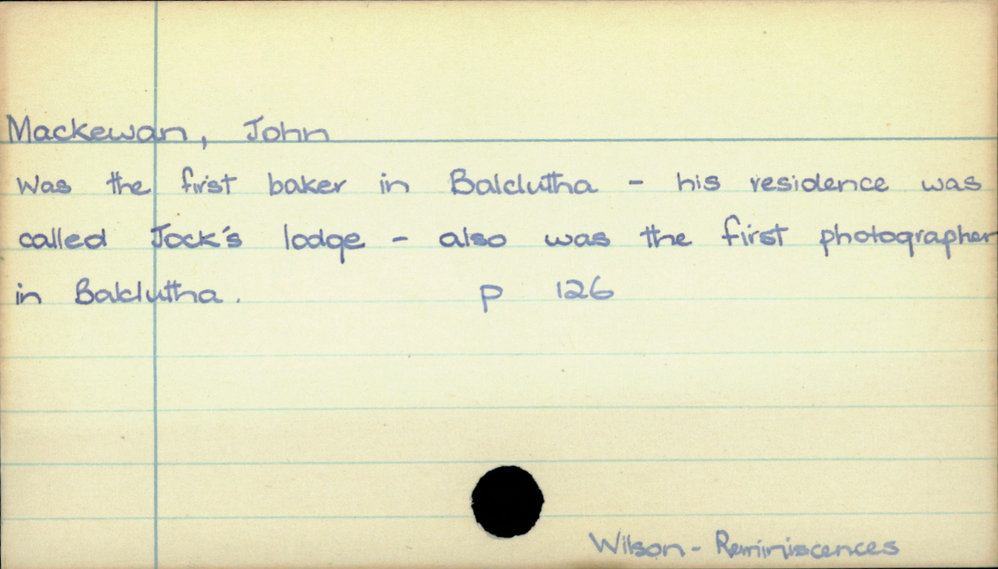 Mackewan, John
Was the first baker in Balclutha - his residence was
called Jock's lodge - also was the first photographer
in Balclutha. p 126
Wilson - Reminiscences